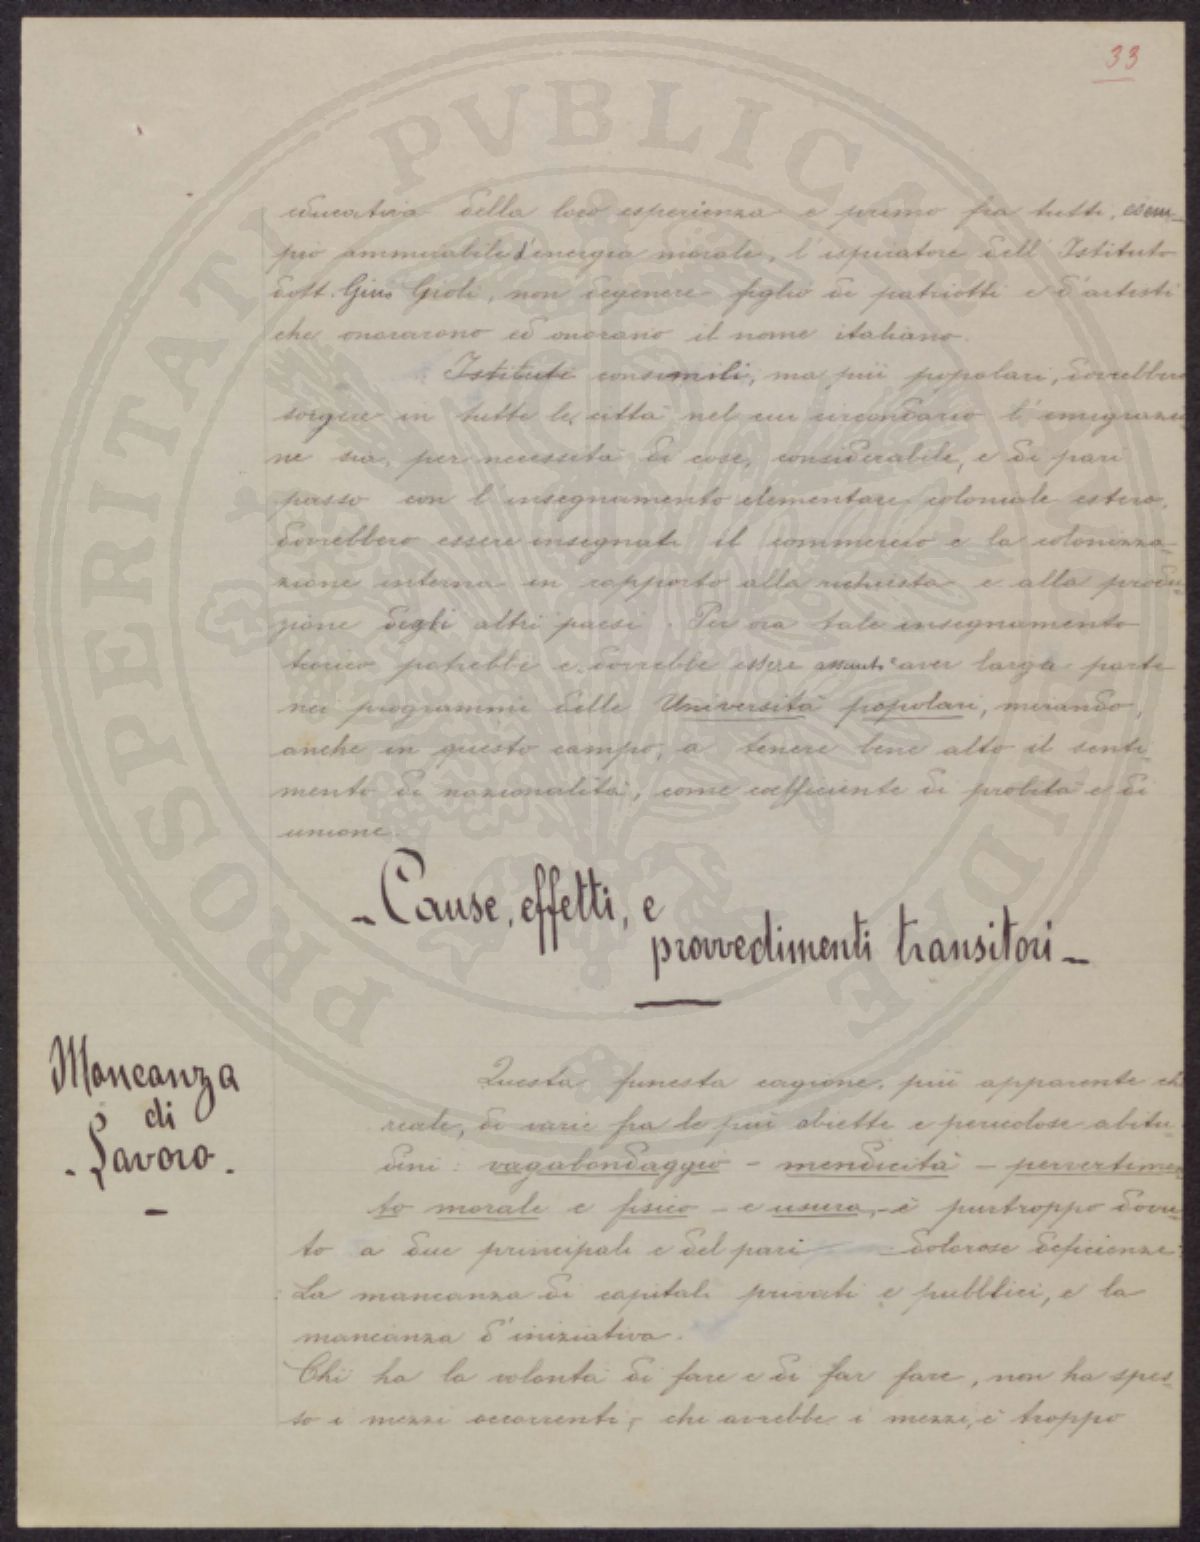 33
educativa della loro esperienza e primo fra tutti, esem-
pio ammirabile d'energia morale, l'ispiratore dell'Istituto
dott. Gius Gioli, non degenere figlio di patriotti e d'artisti
che onorarono ed onorano il nome italiano.
Istituti consimili, ma più popolari, dovrebbero
sorgere in tutte le città nel cui circondario l'emigrazio
ne sia, per necessità di cose, considerabile, e di pari
passo con l'insegnamento elementare coloniale estero,
dovrebbero essere insegnati il commercio e la colonizza-
zione interna in rapporto alla richiesta e alla produ-
zione degli altri paesi. Per ora tale insegnamento
teorico potrebbe e dovrebbe essere assunto e aver larga parte
nei programmi delle Università popolari, mirando,
anche in questo campo, a tenere bene alto il senti-
mento di nazionalità, come coefficiente di probità e di
unione.
- Cause, effetti, e
provvedimenti transitori -
Mancanza
di
- Lavoro.
Questa funesta cagione, più apparente che
reale, di varie fra le più abiette e pericolose abitu-
dini: vagabondaggio - mendicità - pervertimen-
to morale e fisico - e usura, - è purtroppo dovu-
to a due principali e del pari dolorose deficienze:
La mancanza di capitali privati e pubblici, e la
mancanza d'iniziativa.
Chi ha la volontà di fare e di far fare, non ha spes-
so i mezzi occorrenti, chi avrebbe i mezzi, è troppo
PROSPERITATI PVBLICAE VINDE